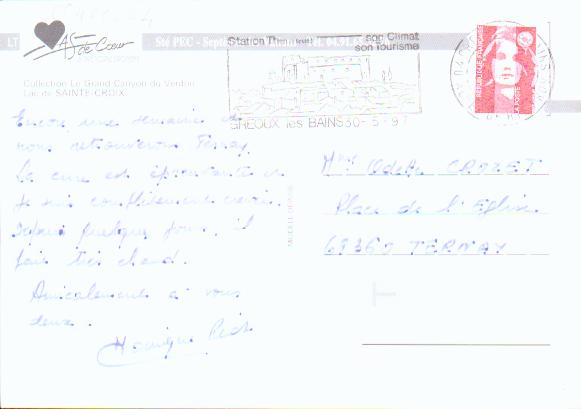 AS de Cœur
Collection Le Grand Canyon du Verdon
Lac de SAINTE-CROIX
Sté PEC - Sept
Station Thermale
son Climat
son Tourisme
GREOUX les BAINS 30-5-97
REPUBLIQUE FRANÇAISE
Encore une semaine et
nous retrouverons Ternay.
La cure est éprouvante et
je suis complètement crevée.
Depuis quelques jours, il
fait très chaud.
Amicalement à vous
deux.
Mme Odette CROZET
Place de l'Eglise
69360 TERNAY